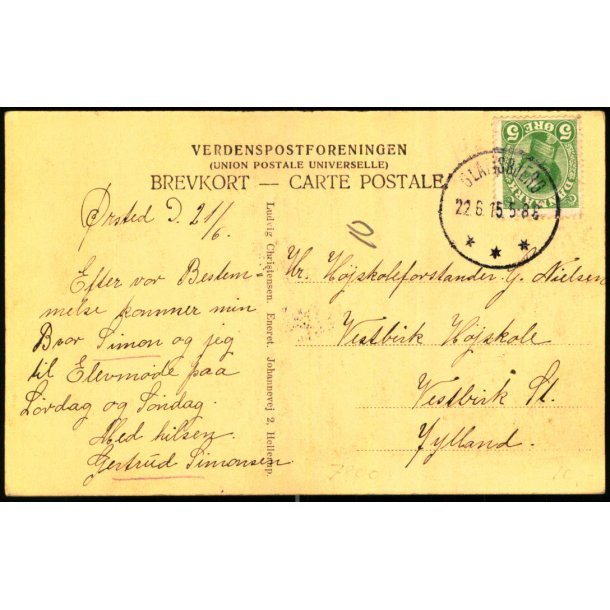 VERDENSPOSTFORENINGEN
(UNION POSTALE UNIVERSELLE)
BREVKORT — CARTE POSTALE
5 ØRE 5
22.6.15. 5-8 E
Ørsted D. 21/6.
Efter vor Bestem
melse kommer min
Bror Simon og jeg
til Elevmøde paa
Lørdag og Søndag.
Med hilsen.
Gertrud Simonsen
Ludvig Christensen. Eneret. Johannevej 2, Hellerup.
Hr. Højskoleforstander G. Nielsen
Vestbirk Højskole
Vestbirk St.
Jylland.